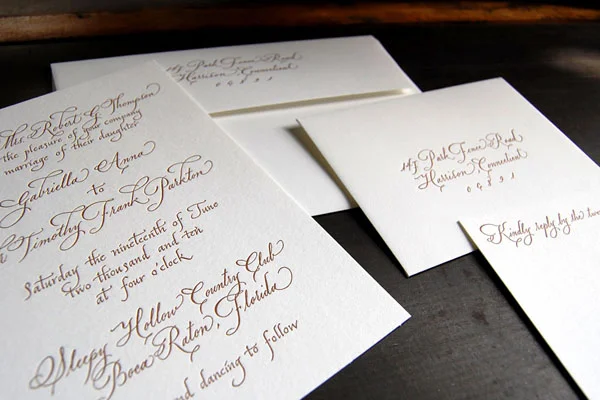 Mrs. Robert G. Thompson
the pleasure of your company
marriage of their daughter
Gabriella Anna
to
Timothy Frank Parkton
Saturday the nineteenth of June
two thousand and ten
at four o'clock
Sleepy Hollow Country Club
Boca Raton, Florida
and dancing to follow
147 Park Fence Road
Harrison, Connecticut
147 Park Fence Road
Harrison, Connecticut
Kindly reply by the